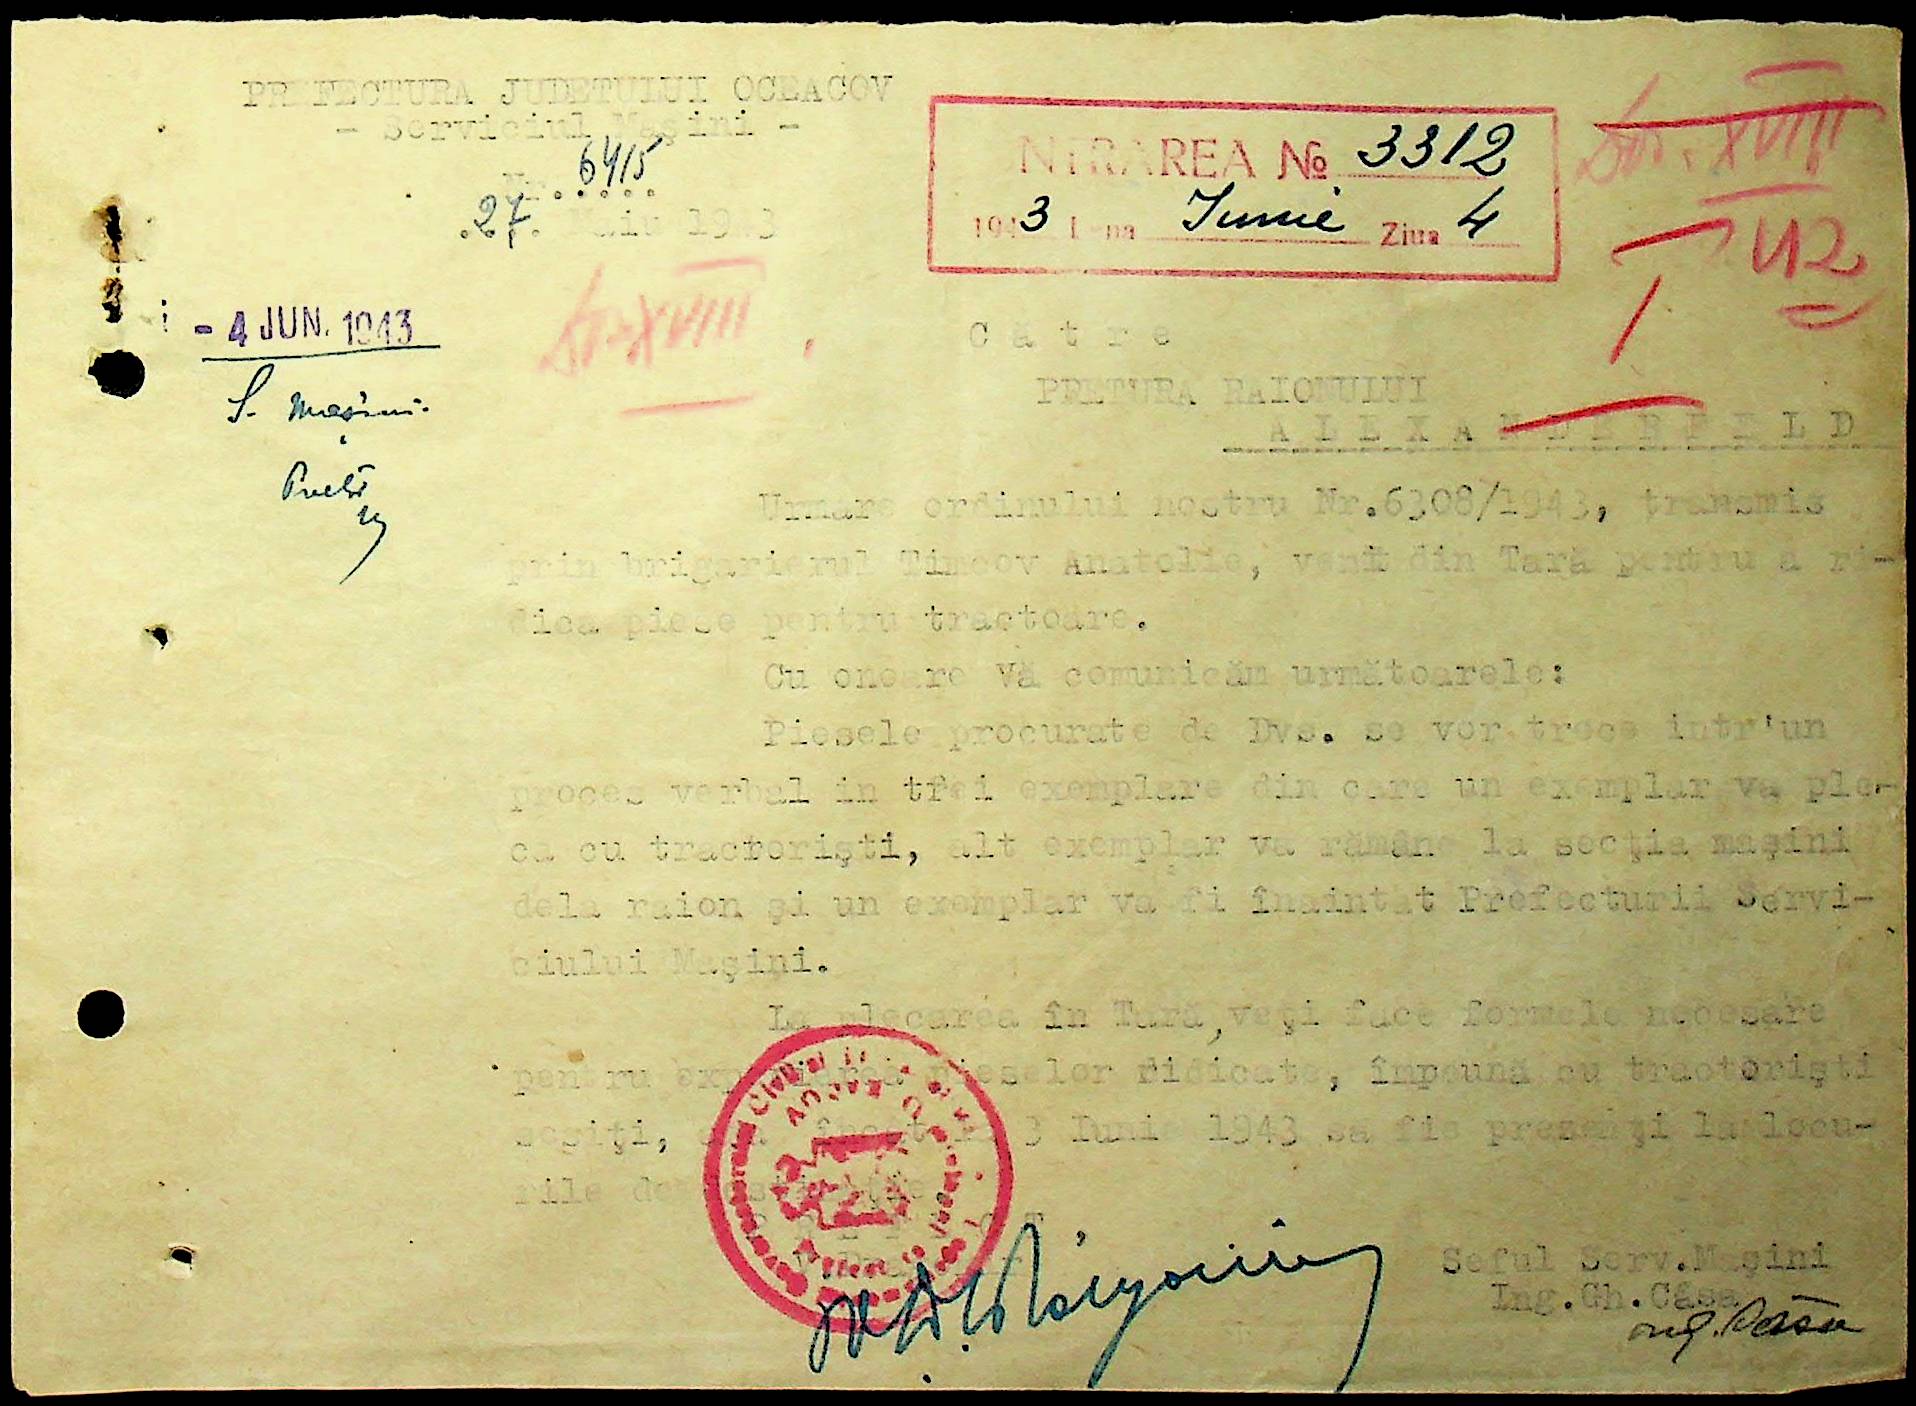 PREFECTURA JUDETULUI OCEACOV
- Serviciul Maşini -
Nr. 6415
27. Maiu 1943
INTRAREA № 3312
1943 Luna Iunie Ziua 4
Dos. XVIII
42
Dos. XVIII
- 4 JUN. 1943
S. Maşini.
Pretor
C ă t r e
PRETURA RAIONULUI
A L E X A N D E R F E L D
Urmare ordinului nostru Nr.6308/1943, transmis
prin brigarierul Timcov Anatolie, venit din Tară pentru a ri-
dica piese pentru tractoare.
Cu onoare Vă comunicăm următoarele:
Piesele procurate de Dvs. se vor trece intr'un
proces verbal in trei exemplare din care un exemplar va ple-
ca cu tractorişti, alt exemplar va rămâne la secţia maşini
dela raion şi un exemplar va fi înaintat Prefecturii Servi-
ciului Maşini.
La plecarea în Tară, veţi face formele necesare
pentru expedierea pieselor ridicate, împeună cu tractorişti
sosiţi, 3 Iunie 1943 sa fie prezenţi la locu-
rile de
P R E F E C T,
Seful Serv.Maşini
Ing.Gh.Câsa
ing.